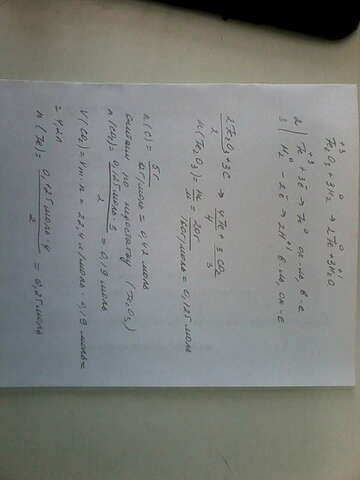 +3 0 0 +1
Fe₂O₃ + 3H₂ → 2Fe + 3H₂O
2 | Fe⁺³ + 3ē → Fe⁰ ок-ль, в-е
3 | H₂⁰ - 2ē → 2H⁺¹ в-ль, ок-е
2Fe₂O₃ + 3C → 4Fe + 3CO₂
2 4 3
n(Fe₂O₃) = m/M = 20г / 160г/моль = 0,125 моль
n(C) = 5г / 12г/моль = 0,42 моль
Считаем по недостатку (Fe₂O₃)
n(CO₂) = 0,125 моль · 3 / 2 = 0,19 моль
V(CO₂) = Vm · n = 22,4 л/моль · 0,19 моль =
= 4,2 л
n(Fe) = 0,125 моль · 4 / 2 = 0,25 моль